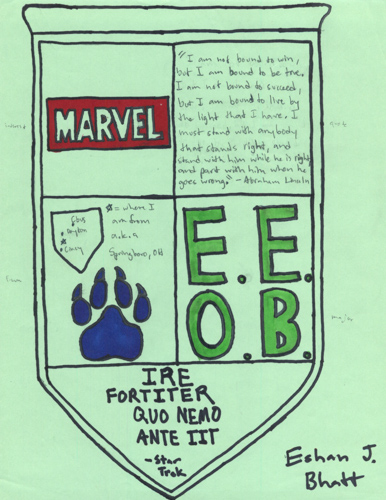 MARVEL
"I am not bound to win,
but I am bound to be true.
I am not bound to succeed,
but I am bound to live by
the light that I have. I
must stand with anybody
that stands right, and
stand with him while he is right,
and part with him when he
goes wrong." - Abraham Lincoln
Cbus
Dayton
Cincy
☆ = where I
am from
a.k.a
Springboro, OH
E.E.
O.B.
major
IRE
FORTITER
QUO NEMO
ANTE IIT
- Star
Trek
Eshan J.
Bhatt